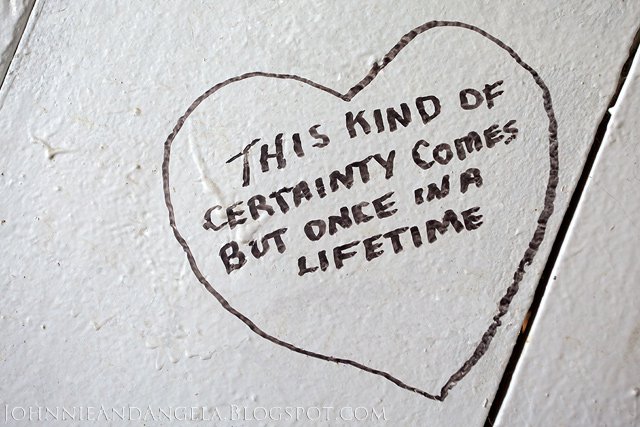 THIS KIND OF
CERTAINTY COMES
BUT ONCE IN A
LIFETIME
JOHNNIEANDANGELA.BLOGSPOT.COM